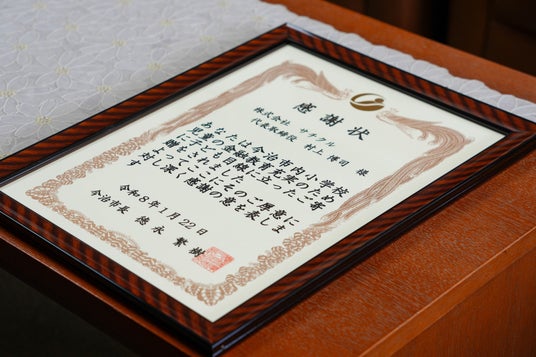 感謝状
株式会社 サタケル
代表取締役 村上 博司 様
あなたは今治市内小学校
児童の金融教育充実のため
子ども目線に立ったご寄
贈をされました
よってここにそのご厚意に
対し深く感謝の意を表しま
す
令和8年1月22日
今治市長 徳永 繁樹